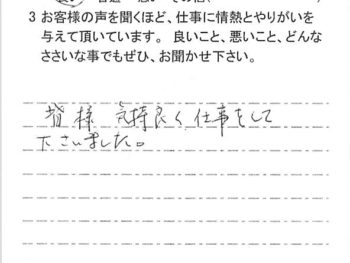 3 お客様の声を聞くほど、仕事に情熱とやりがいを
与えて頂いています。 良いこと、悪いこと、どんな
ささいな事でもぜひ、お聞かせ下さい。
皆様 気持良く仕事をして
下さいました。